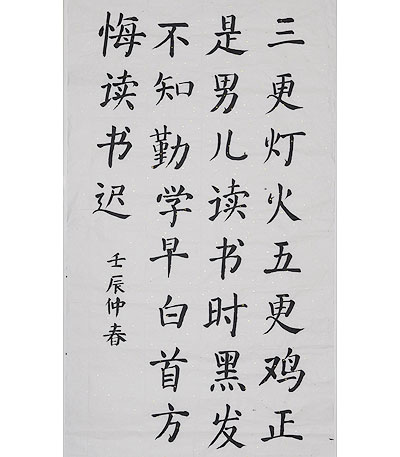 三更灯火五更鸡正
是男儿读书时黑发
不知勤学早白首方
悔读书迟
壬辰仲春